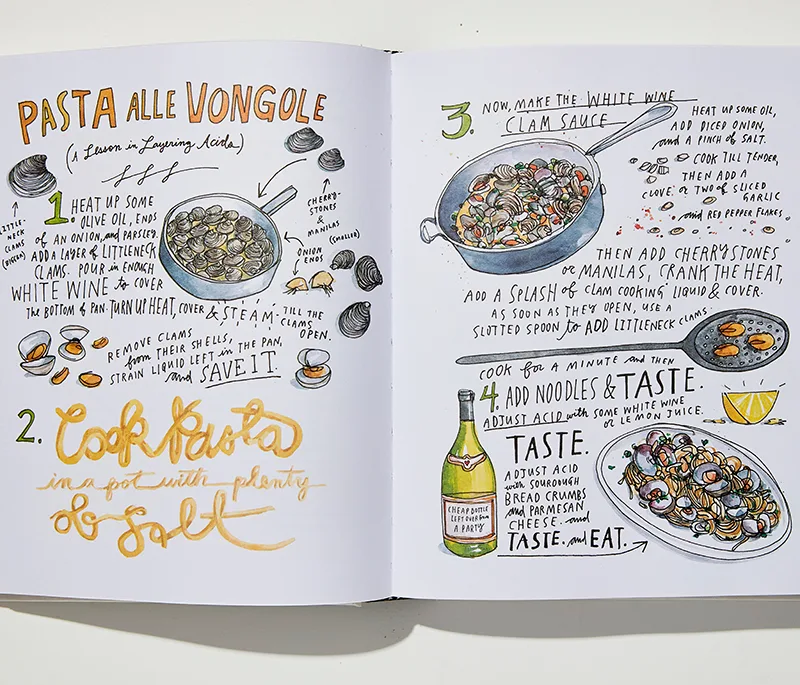 PASTA ALLE VONGOLE
(A Lesson in Layering Acids)
LITTLE-
NECK
CLAMS
(BIGGER)
CHERRY-
STONES
&
MANILAS
(SMALLER)
ONION
ENDS
1 HEAT UP SOME
OLIVE OIL, ENDS
OF AN ONION, and PARSLEY.
ADD A LAYER of LITTLENECK
CLAMS. POUR in ENOUGH
WHITE WINE to COVER
THE BOTTOM OF PAN. TURN UP HEAT, COVER & STEAM TILL THE
CLAMS
OPEN.
REMOVE CLAMS
from THEIR SHELLS,
STRAIN LIQUID LEFT in THE PAN,
and SAVE IT.
2. Cook Pasta
in a pot with plenty
of Salt
3. NOW, MAKE THE WHITE WINE
CLAM SAUCE
HEAT UP SOME OIL,
ADD DICED ONION,
and A PINCH of SALT.
COOK TILL TENDER,
THEN ADD A
CLOVE or TWO of SLICED
GARLIC
and RED PEPPER FLAKES.
THEN ADD CHERRYSTONES
or MANILAS, CRANK THE HEAT,
ADD A SPLASH of CLAM COOKING LIQUID & COVER.
AS SOON AS THEY OPEN, USE A
SLOTTED SPOON to ADD LITTLENECK CLAMS.
COOK FOR A MINUTE and THEN
4. ADD NOODLES & TASTE.
ADJUST ACID with SOME WHITE WINE
or LEMON JUICE.
TASTE.
ADJUST ACID
with SOURDOUGH
BREAD CRUMBS
and PARMESAN
CHEESE. and
TASTE. and EAT.
CHEAP BOTTLE
LEFT OVER from
A PARTY